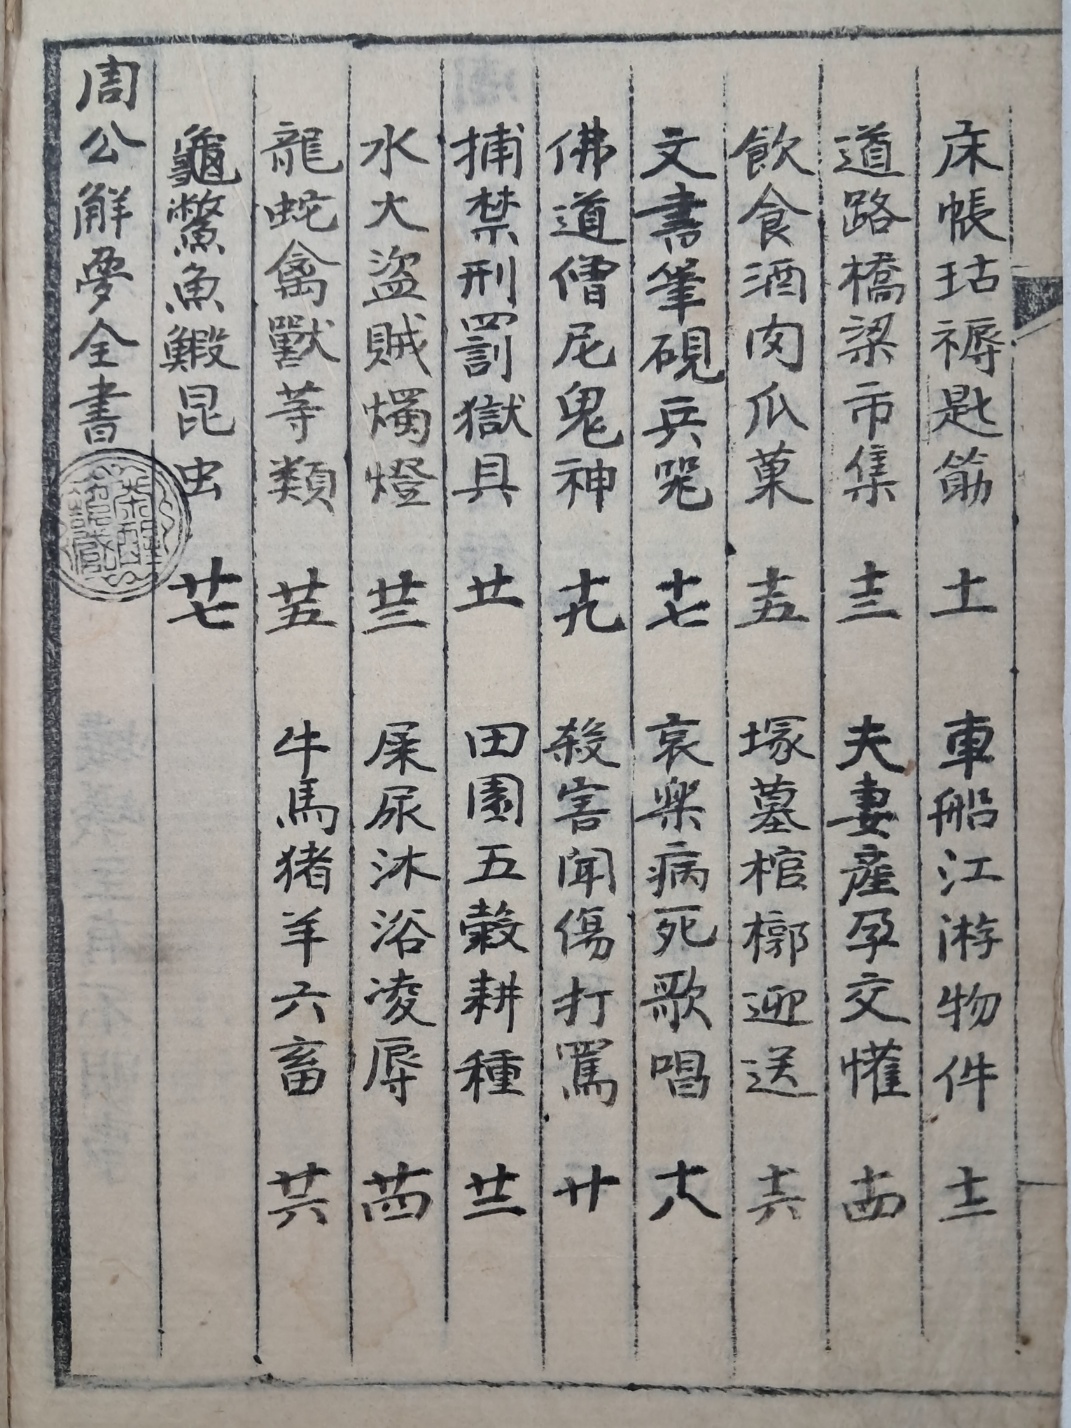 床帳玷褥匙筯 土 車船江游物件 十二
道路橋梁市集 十三 夫妻產孕交懽 十四
飲食酒肉瓜菓 十五 塚墓棺槨迎送 十六
文書筆硯兵 十七 哀樂病死歌唱 十八
佛道僧尼鬼神 十九 殺害聞傷打罵 廿
捕禁刑罰獄具 廿一 田園五穀耕種 廿二
水大盜賊燭燈 廿三 屎尿沐浴凌辱 廿四
龍蛇禽獸等類 廿五 牛馬猪羊六畜 廿六
龜鱉魚鰕昆虫 廿七
周公解夢全書